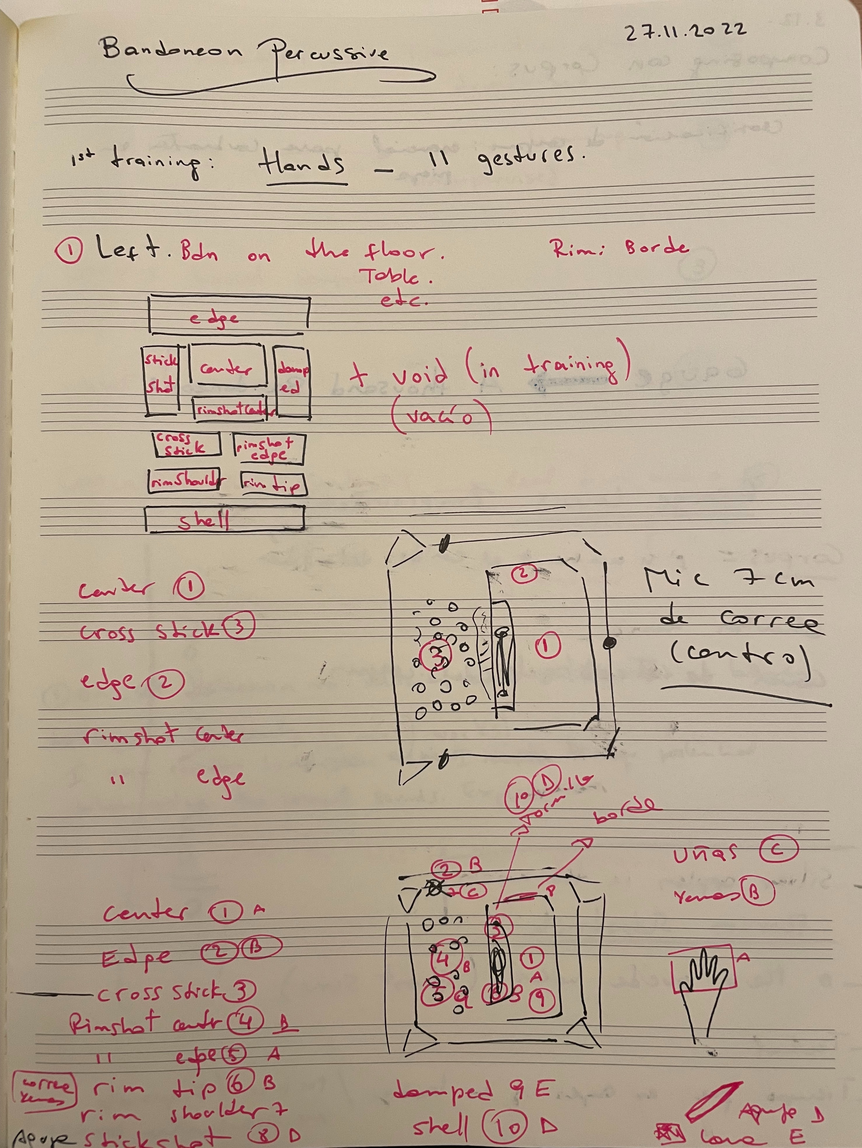 27.11.2022
Bandoneon Percussive
1st training: Hands _ 11 gestures.
① Left. Bdn on the floor. Rim: Borde
Table.
etc.
edge
stick shot
center
damped
rimshot center
+ void (in training)
(vacío)
cross stick
rimshot edge
rim shoulder
rim tip
shell
center ①
cross stick ③
edge ②
rimshot center
" edge
②
③
①
Mic 7 cm
de correa
(centro)
10 D
borde
② B
C
8
③
④ B
① A
⑤
9
Uñas Ⓒ
Yemas Ⓑ
A
center ① A
Edge ② Ⓑ
cross stick ③
Rimshot centr ④ B
" edge ⑤ A
correa yemas
rim tip ⑥ B
rim shoulder 7
stick shot ⑧ D
damped 9 E
shell ⑩ D
D
E